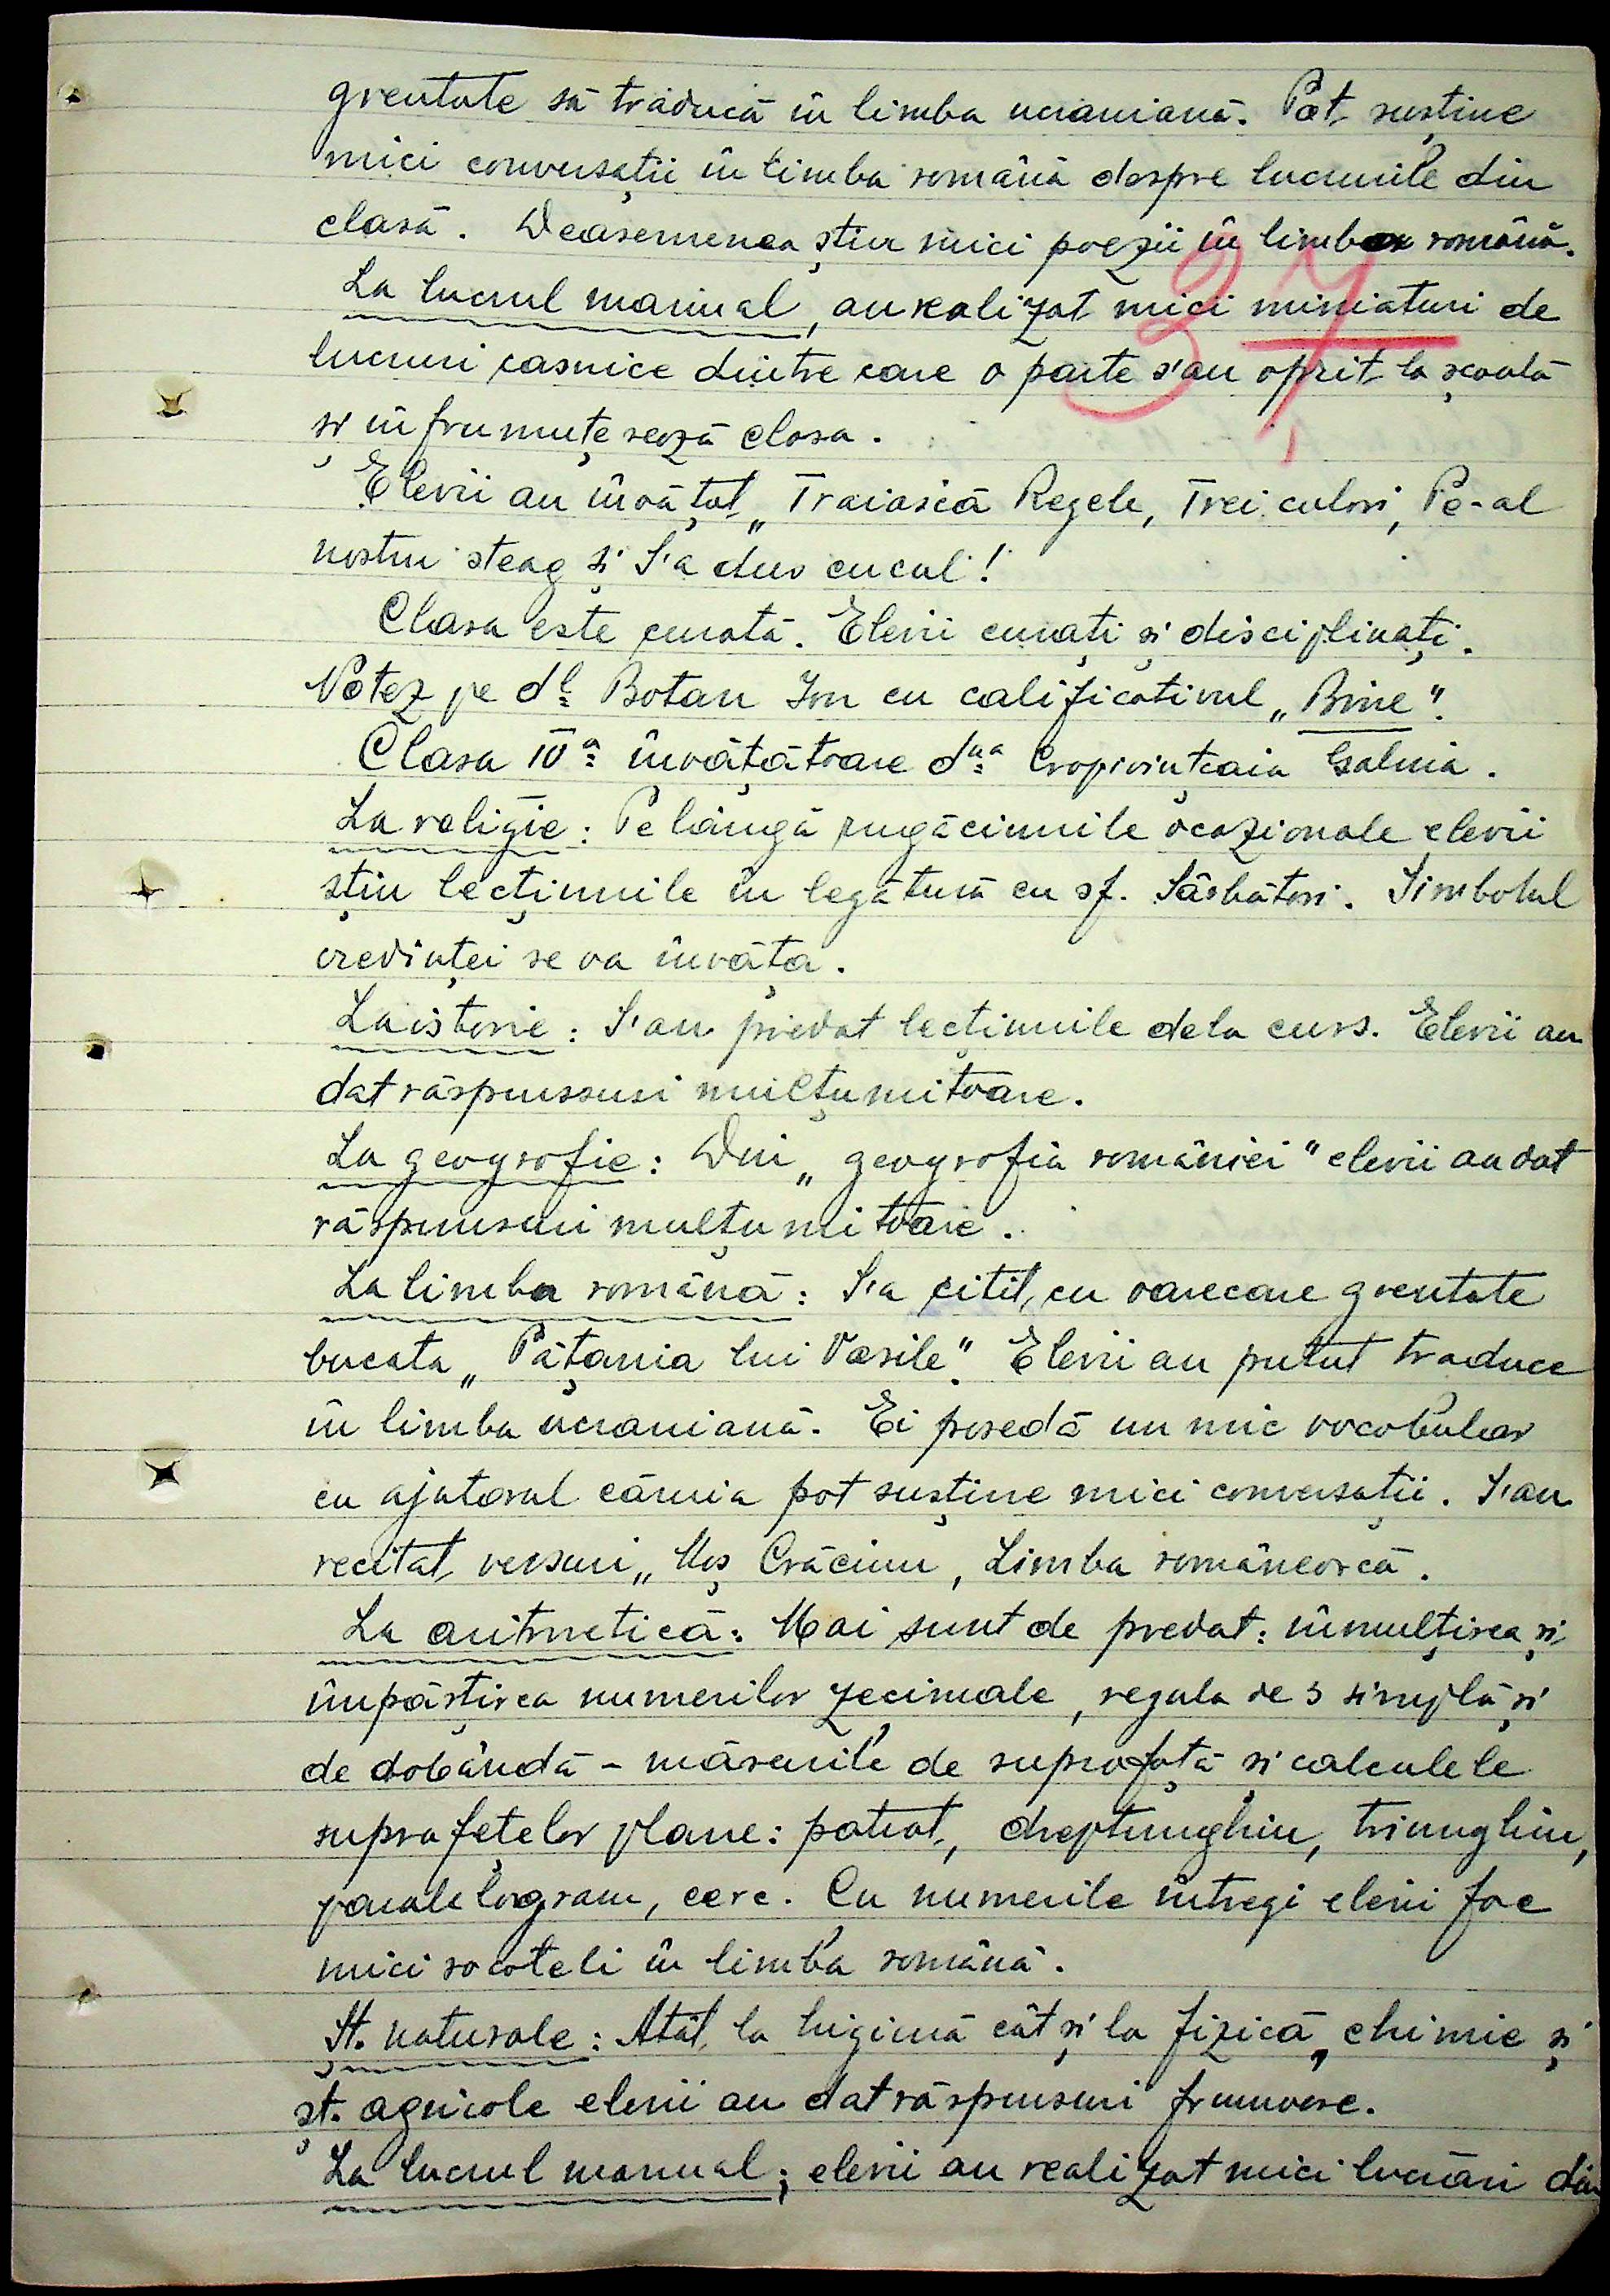 greutate să traducă în limba ucraniană. Pot susține
mici conversații în limba română despre lucrurile din
clasă. Deasemenea știu mici poezii în limba română.
37
La lucrul manual, au realizat mici miniaturi de
lucruri casnice dintre care o parte s'au oprit la școală
și înfrumuțesează clasa.
Elevii au învățat „Traiască Regele, Trei culori, Pe-al
nostru steag și S'a dus cucul!
Clasa este curată. Elevii curați și disciplinați.
Notez pe dl Botan Ion cu calificativul „Bine".
Clasa IVa învățătoare dna Cropivințcaia Galina.
La religie: Pe lângă rugăciunile ocazionale elevii
știu lecțiunile în legătură cu sf. Sărbători. Simbolul
credinței se va învăța.
La istorie: S'au predat lecțiunile dela curs. Elevii au
dat răspunssuri mulțumitoare.
La geografie: Din „geografia româniei" elevii au dat
răspunsuri mulțumitoare.
La limba română: S'a citit cu oarecare greutate
bucata „Pățania lui Vasile". Elevii au putut traduce
în limba ucraniană. Ei posedă un mic vocabular
cu ajutorul căruia pot susține mici conversații. S'au
recitat versuri „Moș Crăciun, Limba românească.
La aritmetică: Mai sunt de predat: înmulțirea și
împărțirea numerilor zecimale, regula de 3 simplă și
de dobândă - măsurile de suprafață și calculele
suprafețelor plane: patrat, dreptunghiu, triunghiu,
paralelogram, cerc. Cu numerile întregi elevii fac
mici socoteli în limba română.
Șt. naturale: Atât la higienă cât și la fizică, chimie și
șt. agricole elevii au dat răspunsuri frumoase.
La lucrul manual; elevii au realizat mici lucrări din